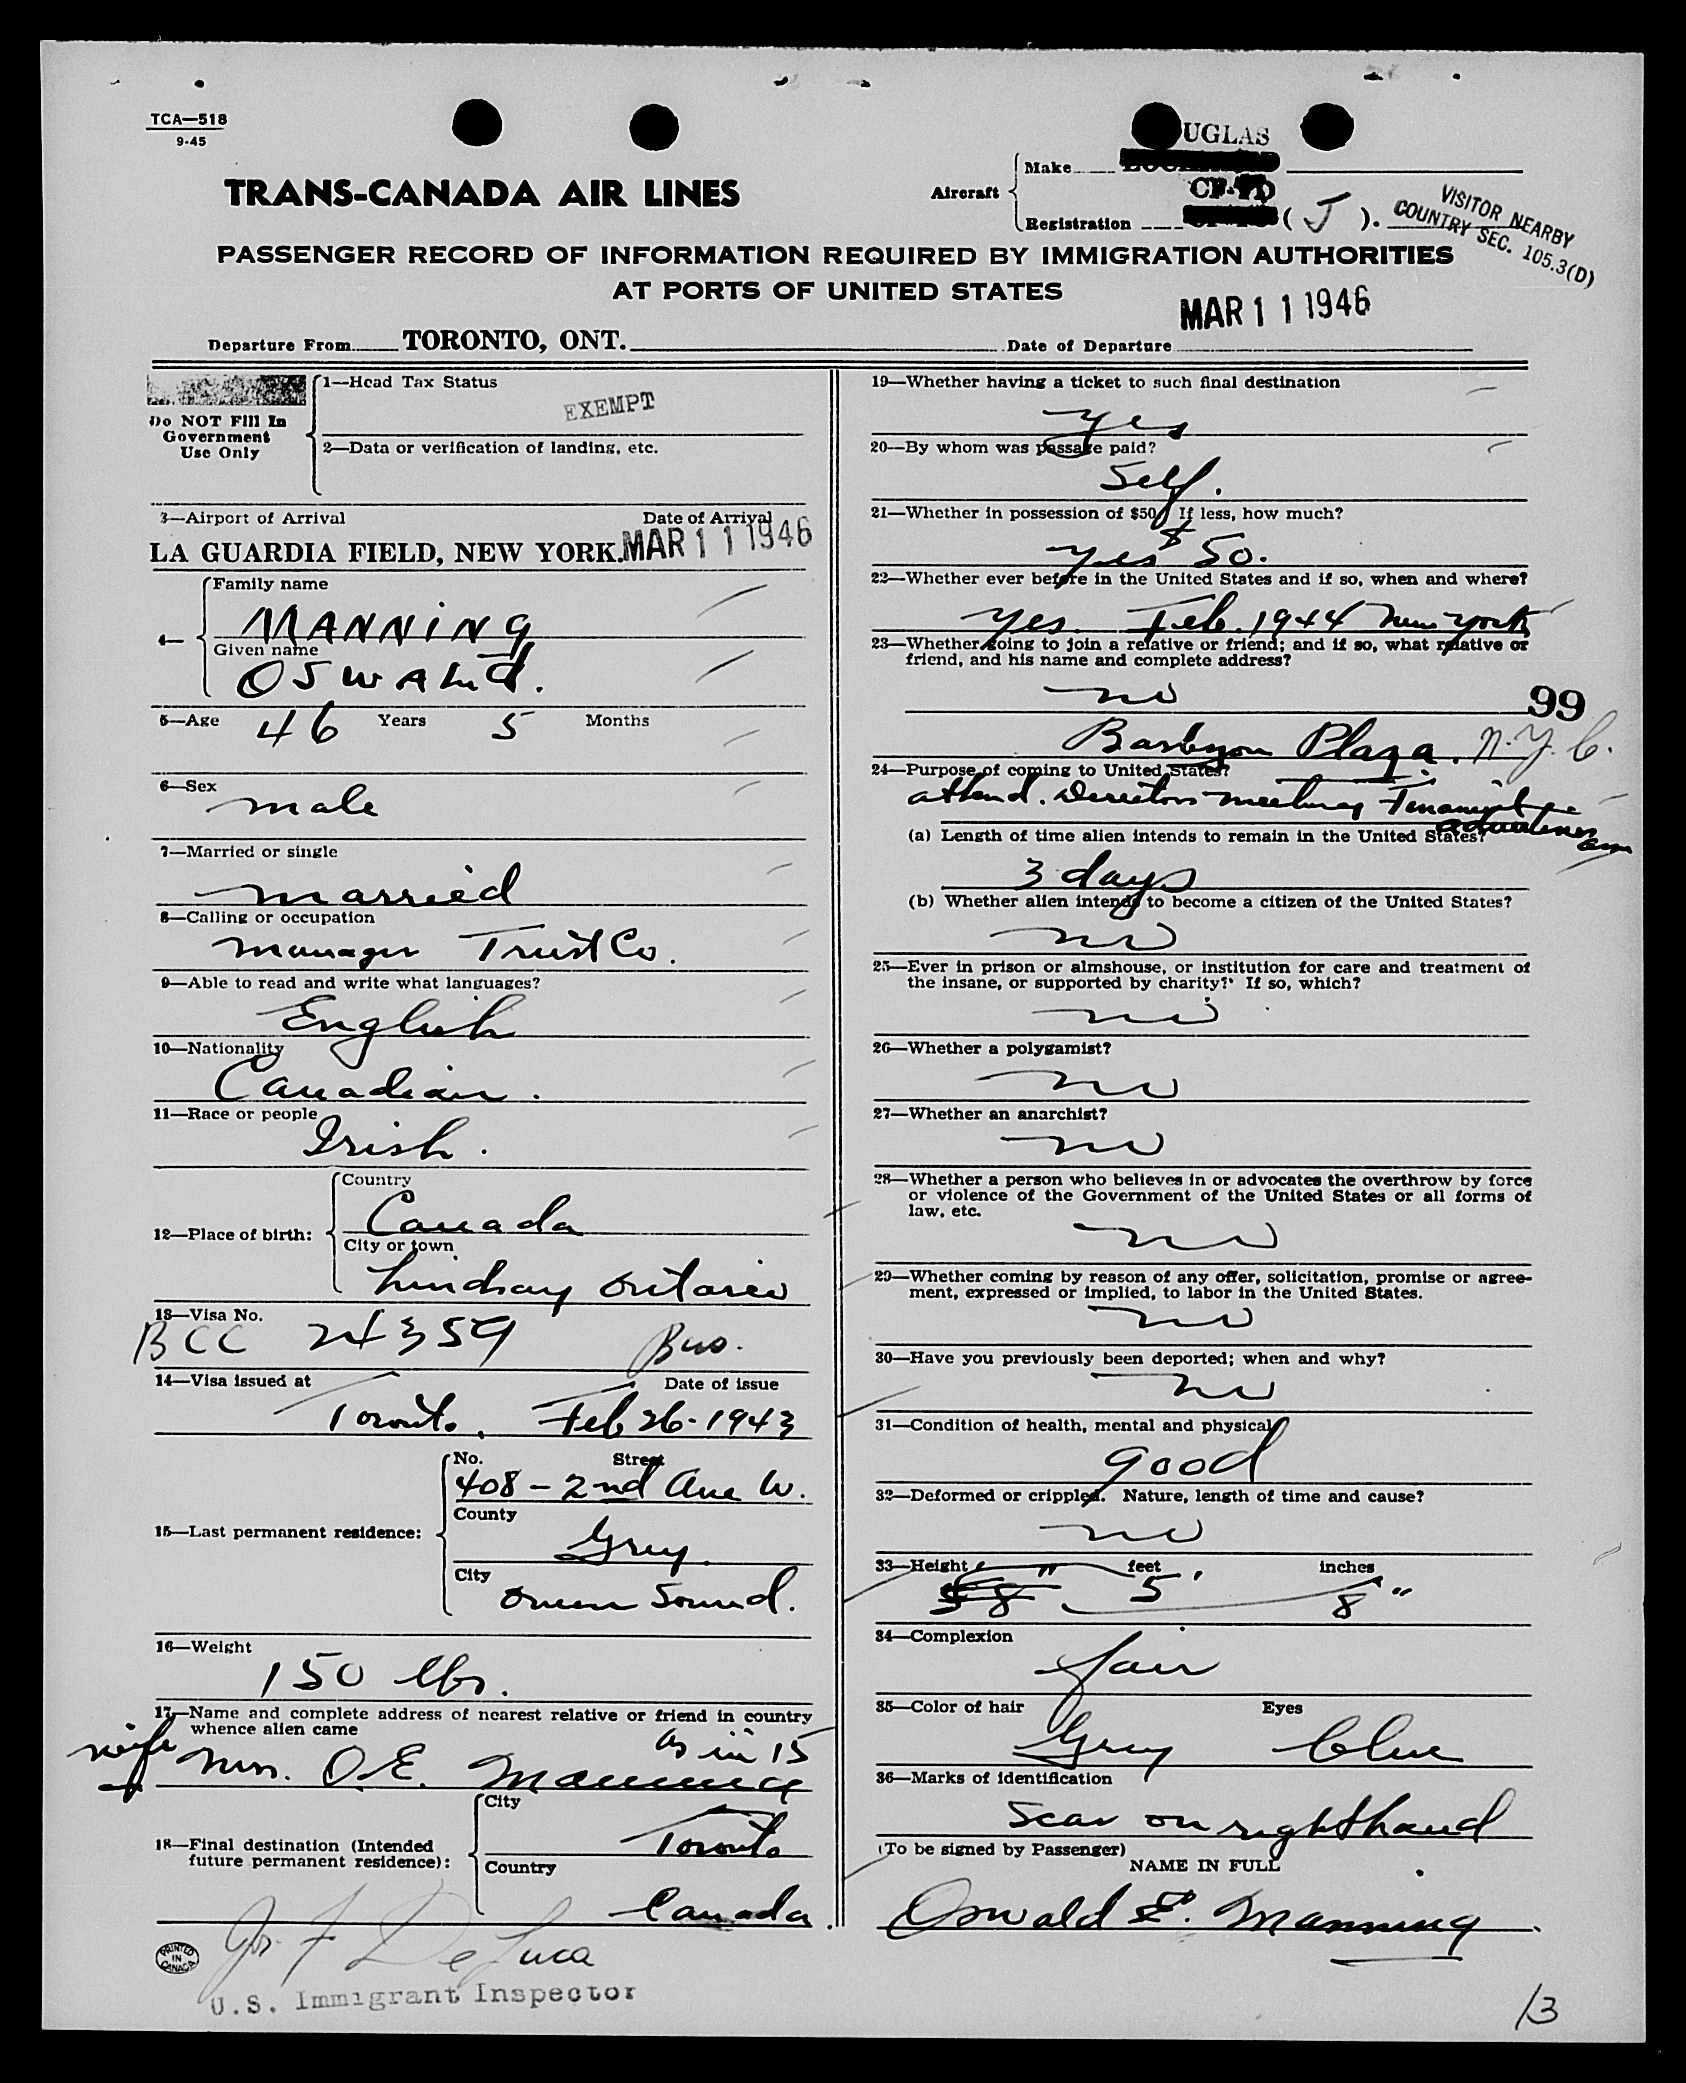 TCA—518
9-45
UGLAS
TRANS-CANADA AIR LINES
Aircraft
Make
CF-T
Registration ( J ).
VISITOR NEARBY
COUNTRY SEC. 105.3(D)
PASSENGER RECORD OF INFORMATION REQUIRED BY IMMIGRATION AUTHORITIES
AT PORTS OF UNITED STATES
MAR 11 1946
Departure From TORONTO, ONT. Date of Departure
Do NOT Fill In
Government
Use Only
1—Head Tax Status
EXEMPT
2—Data or verification of landing, etc.
3—Airport of Arrival Date of Arrival
LA GUARDIA FIELD, NEW YORK. MAR 11 1946
4—
Family name
MANNING
Given name
OSWALD.
5—Age 46 Years 5 Months
6—Sex
male
7—Married or single
married
8—Calling or occupation
manager Trust Co.
9—Able to read and write what languages?
English
10—Nationality
Canadian.
11—Race or people
Irish.
12—Place of birth:
Country
Canada
City or town
Lindsay Ontario
13—Visa No.
BCC 24359 Bus.
14—Visa issued at Date of issue
Toronto, Feb 26-1943
15—Last permanent residence:
No. Street
408 - 2nd Ave W.
County
Grey.
City
Owen Sound.
16—Weight
150 lbs.
17—Name and complete address of nearest relative or friend in country
whence alien came
as in 15
wife Mrs. O.E. Manning
18—Final destination (Intended
future permanent residence):
City
Toronto
Country
Canada.
F De Luca
U.S. Immigrant Inspector
PRINTED
IN
CANADA
19—Whether having a ticket to such final destination
yes
20—By whom was passage paid?
Self.
21—Whether in possession of $50. If less, how much?
yes $50.
22—Whether ever before in the United States and if so, when and where?
yes Feb. 1944 New York
23—Whether going to join a relative or friend; and if so, what relative or
friend, and his name and complete address?
no
99
Barbizon Plaza. N.Y.C.
24—Purpose of coming to United States?
attend. Directors meeting Financial
(a) Length of time alien intends to remain in the United States?
3 days
(b) Whether alien intends to become a citizen of the United States?
no
25—Ever in prison or almshouse, or institution for care and treatment of
the insane, or supported by charity? If so, which?
no
26—Whether a polygamist?
no
27—Whether an anarchist?
no
28—Whether a person who believes in or advocates the overthrow by force
or violence of the Government of the United States or all forms of
law, etc.
no
29—Whether coming by reason of any offer, solicitation, promise or agree-
ment, expressed or implied, to labor in the United States.
no
30—Have you previously been deported; when and why?
no
31—Condition of health, mental and physical
good
32—Deformed or crippled. Nature, length of time and cause?
no
33—Height feet inches
5' 8"
34—Complexion
fair
35—Color of hair Eyes
Grey blue
36—Marks of identification
Scar on right hand
(To be signed by Passenger)
NAME IN FULL
Oswald E. Manning
13